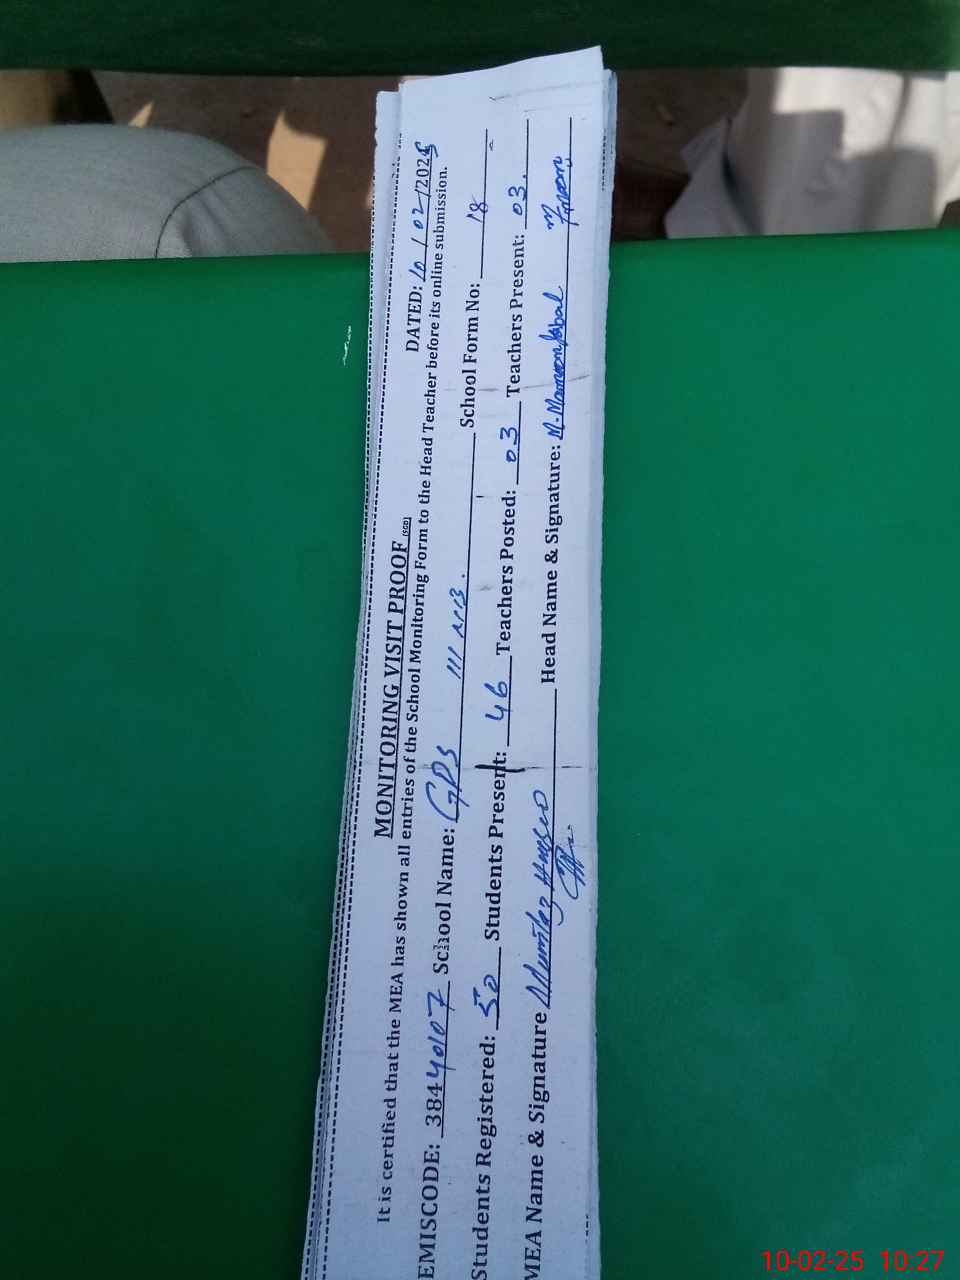 MONITORING VISIT PROOF (SGD)
DATED: 10/02/2025
It is certified that the MEA has shown all entries of the School Monitoring Form to the Head Teacher before its online submission.
EMISCODE: 38440107 School Name: GPS 111 NB. School Form No: 18
Students Registered: 50 Students Present: 46 Teachers Posted: 03 Teachers Present: 03.
MEA Name & Signature Mumtaz Head Name & Signature: M.
10-02-25 10:27